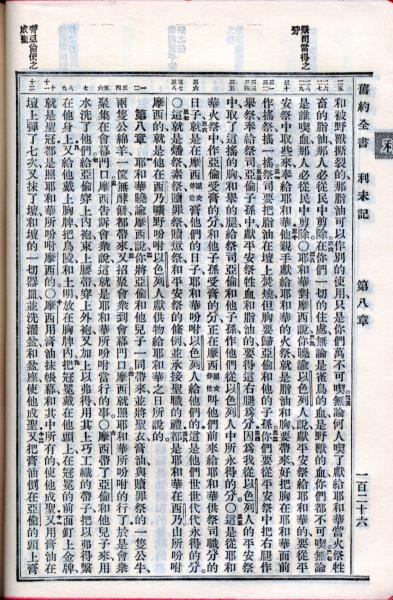 舊約全書 利未記 第八章 一百二十六
祭司當得之
分
和被野獸撕裂的那脂油可以作別的使用只是你們萬不可喫無論何人喫了獻給耶和華當火祭牲
畜的脂油那人必從民中剪除○在你們一切的住處無論是雀鳥的血是野獸的血你們都不可喫無論
是誰喫血那人必從民中剪除○耶和華對摩西說你曉諭以色列人說獻平安祭給耶和華的要從平
安祭中取些來奉給耶和華他親手獻給耶和華的火祭就是脂油和胸要帶來好把胸在耶和華面前
作搖祭搖一搖祭司要把脂油在壇上焚燒但胸要歸亞倫和他的子孫你們要從平安祭中把右腿作
舉祭奉給祭司亞倫子孫中獻平安祭牲血和脂油的要得這右腿為分因為我從以色列人的平安祭
中取了這搖的胸和舉的腿給祭司亞倫和他子孫作他們從以色列人中所永得的分○這是從耶和
華火祭中作亞倫受膏的分和他子孫受膏的分正在摩西叫他們前來給耶和華供祭司職分的
日子就是在摩西膏他們的日子耶和華吩咐以色列人給他們的這是他們世世代代永得的分
○這就是燔祭素祭贖罪祭贖愆祭和平安祭的條例並承接聖職的禮都是耶和華在西乃山所吩咐
摩西的就是他在西乃曠野吩咐以色列人獻供物給耶和華之日所說的
第八章 耶和華曉諭摩西說你將亞倫和他兒子一同帶來並將聖衣膏油與贖罪祭的一隻公牛
兩隻公綿羊一筐無酵餅都帶來又招聚會眾到會幕門口摩西就照耶和華所吩咐的行了於是會眾
聚集在會幕門口摩西告訴會眾說這就是耶和華所吩咐當行的事○摩西帶了亞倫和他兒子來用
水洗了他們給亞倫穿上內袍束上腰帶穿上外袍又加上以弗得用其上巧工織的帶子把以弗得繫
在他身上又給他戴上胸牌把烏陵和土明放在胸牌內把冠冕戴在他頭上在冠冕的前面釘上金牌
就是聖冠都是照耶和華所吩咐摩西的○摩西用膏油抹帳幕和其中所有的使他成聖又用膏油在
壇上彈了七次又抹了壇和壇的一切器皿並洗濯盆和盆座使他成聖又把膏油倒在亞倫的頭上膏
膏亞倫使之
成聖